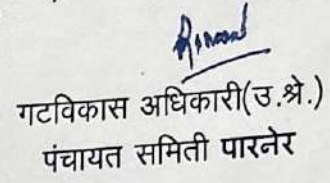 गटविकास अधिकारी(उ.श्रे.)
पंचायत समिती पारनेर